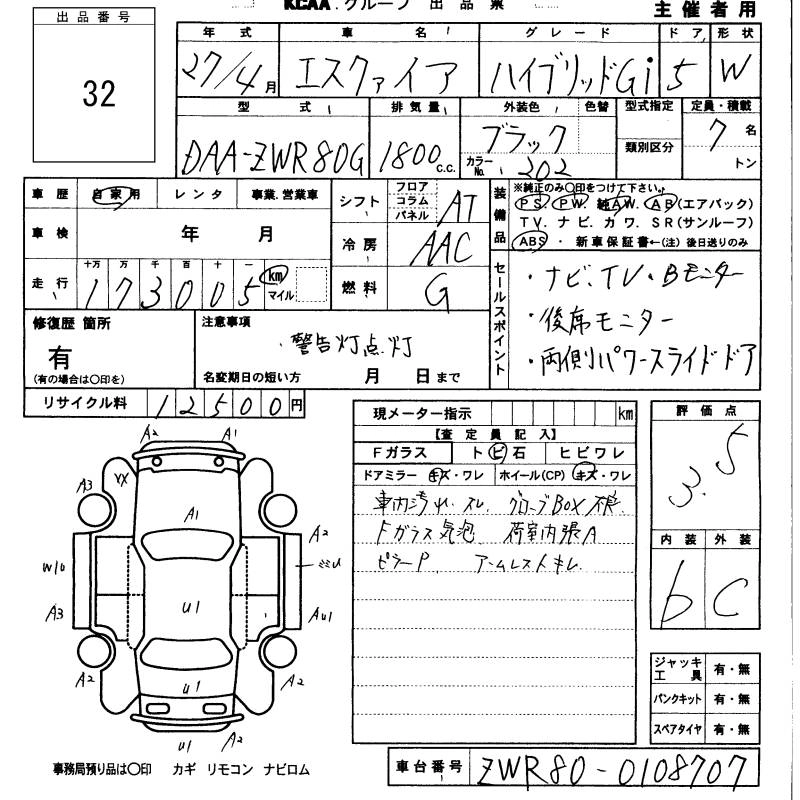 KCAA.グループ 出品票
主催者用
出品番号
32
年式 車名 グレード ドア 形状
27/4月 エスクァイア ハイブリッドGi 5 W
型式 排気量 外装色 色替 型式指定 定員・積載
DAA-ZWR80G 1800c.c. ブラック 類別区分 7名
カラーNo. 202 トン
車歴 自家用 レンタ 事業.営業車
車検 年 月
走行 十万 万 千 百 十 一
173005 km マイル
シフト フロア コラム パネル AT
冷房 AAC
燃料 G
装備品
※純正のみ○印をつけて下さい。
PS PW 純AW. AB(エアバック)
TV. ナビ. カワ. SR(サンルーフ)
ABS ・ 新車保証書←(注) 後日送りのみ
セールスポイント
・ナビ、TV・Bモニター
・後席モニター
・両側パワースライドドア
修復歴 箇所
有
(有の場合は○印を)
注意事項
・警告灯点灯
名変期日の短い方 月 日まで
リサイクル料 12500円
現メーター指示 km
【査定員記入】
Fガラス トビ石 ヒビワレ
ドアミラー キズ・ワレ ホイール(CP) キズ・ワレ
車内汚れ・スレ グローブBOX
Fガラス気泡 荷室内張A
ピラーP アームレストキレ
評価点
3.5
内装 外装
b C
ジャッキ工具 有・無
パンクキット 有・無
スペアタイヤ 有・無
A2 A1
A3 XX
A1 A2
W10
U1
A3 AU1
A2 U1 A2
U1 A2
事務局預り品は○印 カギ リモコン ナビロム
車台番号 ZWR80-0108707